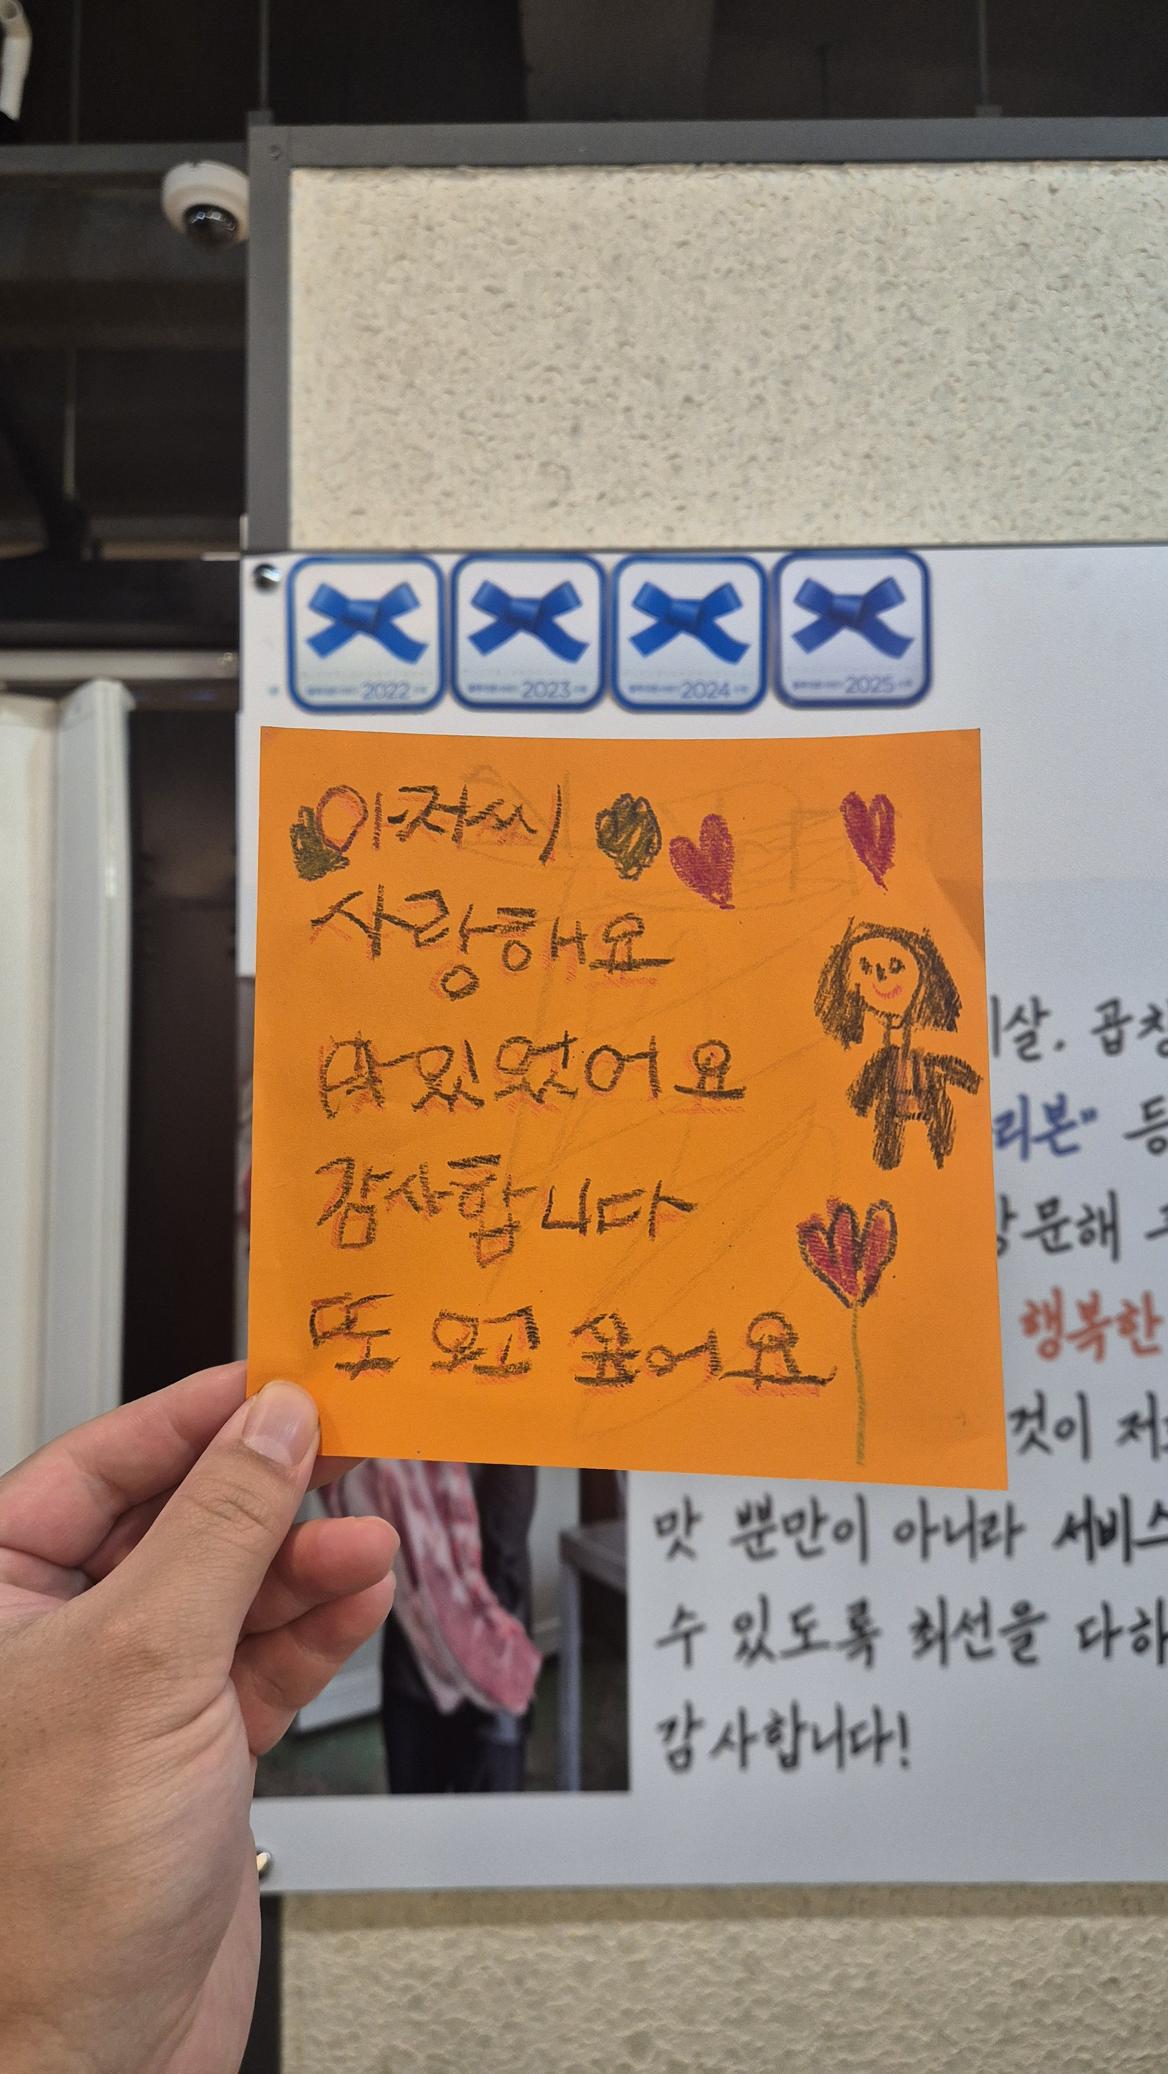 2022 2023 2024 2025
아저씨
사랑해요
맛있었어요
감사합니다
또 오고 싶어요
살. 곱창
리본" 등
방문해 주
행복한
것이 저희
맛 뿐만이 아니라 서비스
수 있도록 최선을 다하
감사합니다!